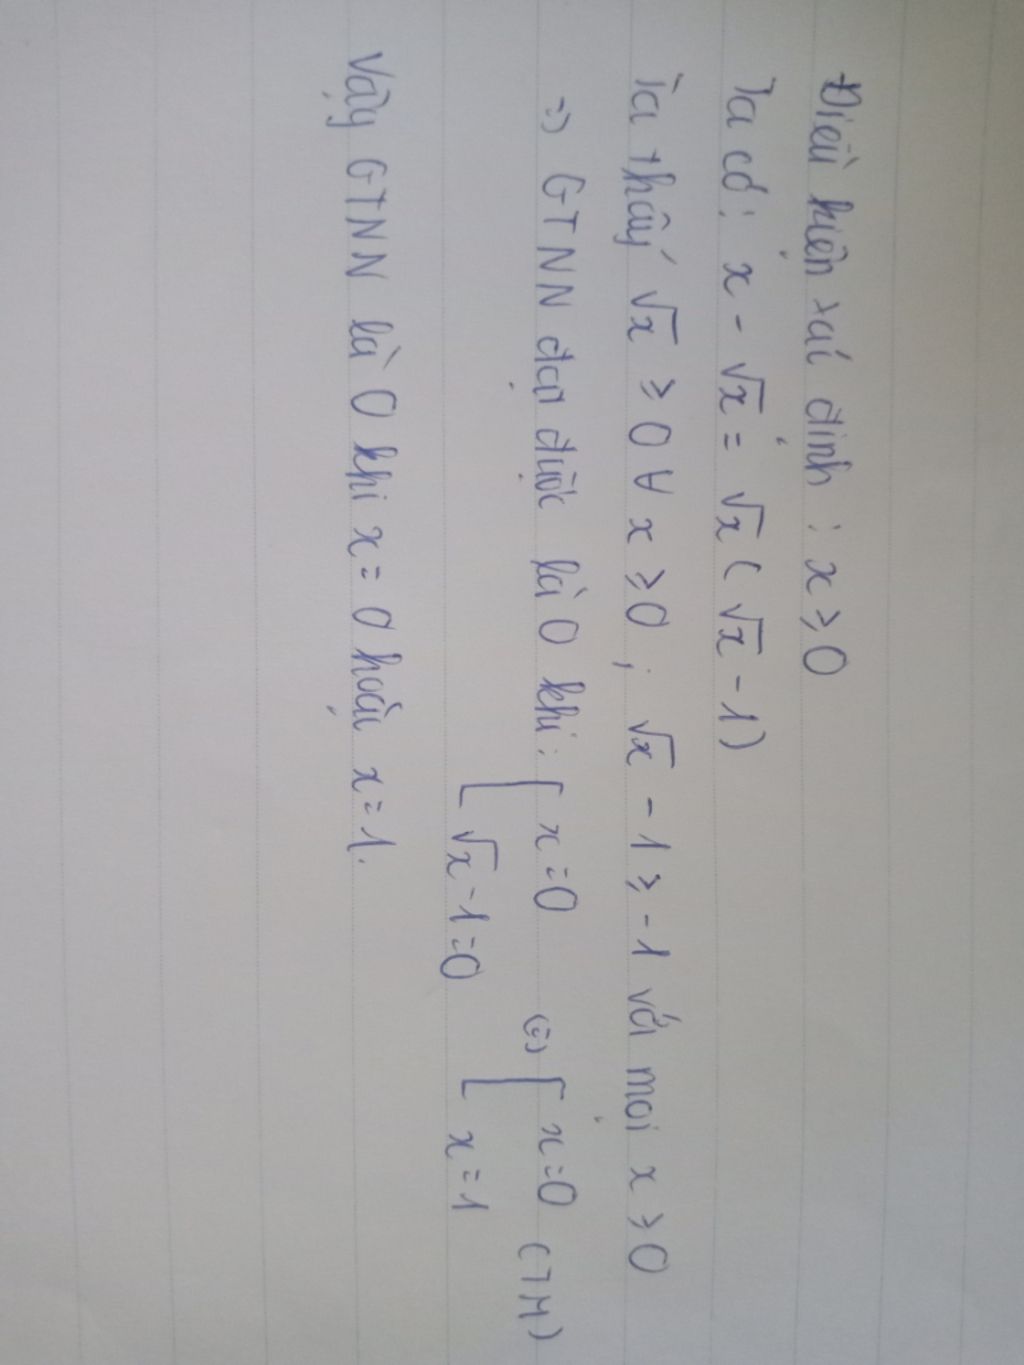 Điều kiện xác định : x ≥ 0
Ta có : x - √x = √x ( √x - 1)
Ta thấy √x ≥ 0 ∀ x ≥ 0 ; √x - 1 ≥ -1 với mọi x ≥ 0
=> GTNN đạt được là 0 khi : [ x = 0 (=) [ x = 0 (TM)
√x - 1 = 0 x = 1
Vậy GTNN là 0 khi x = 0 hoặc x = 1.